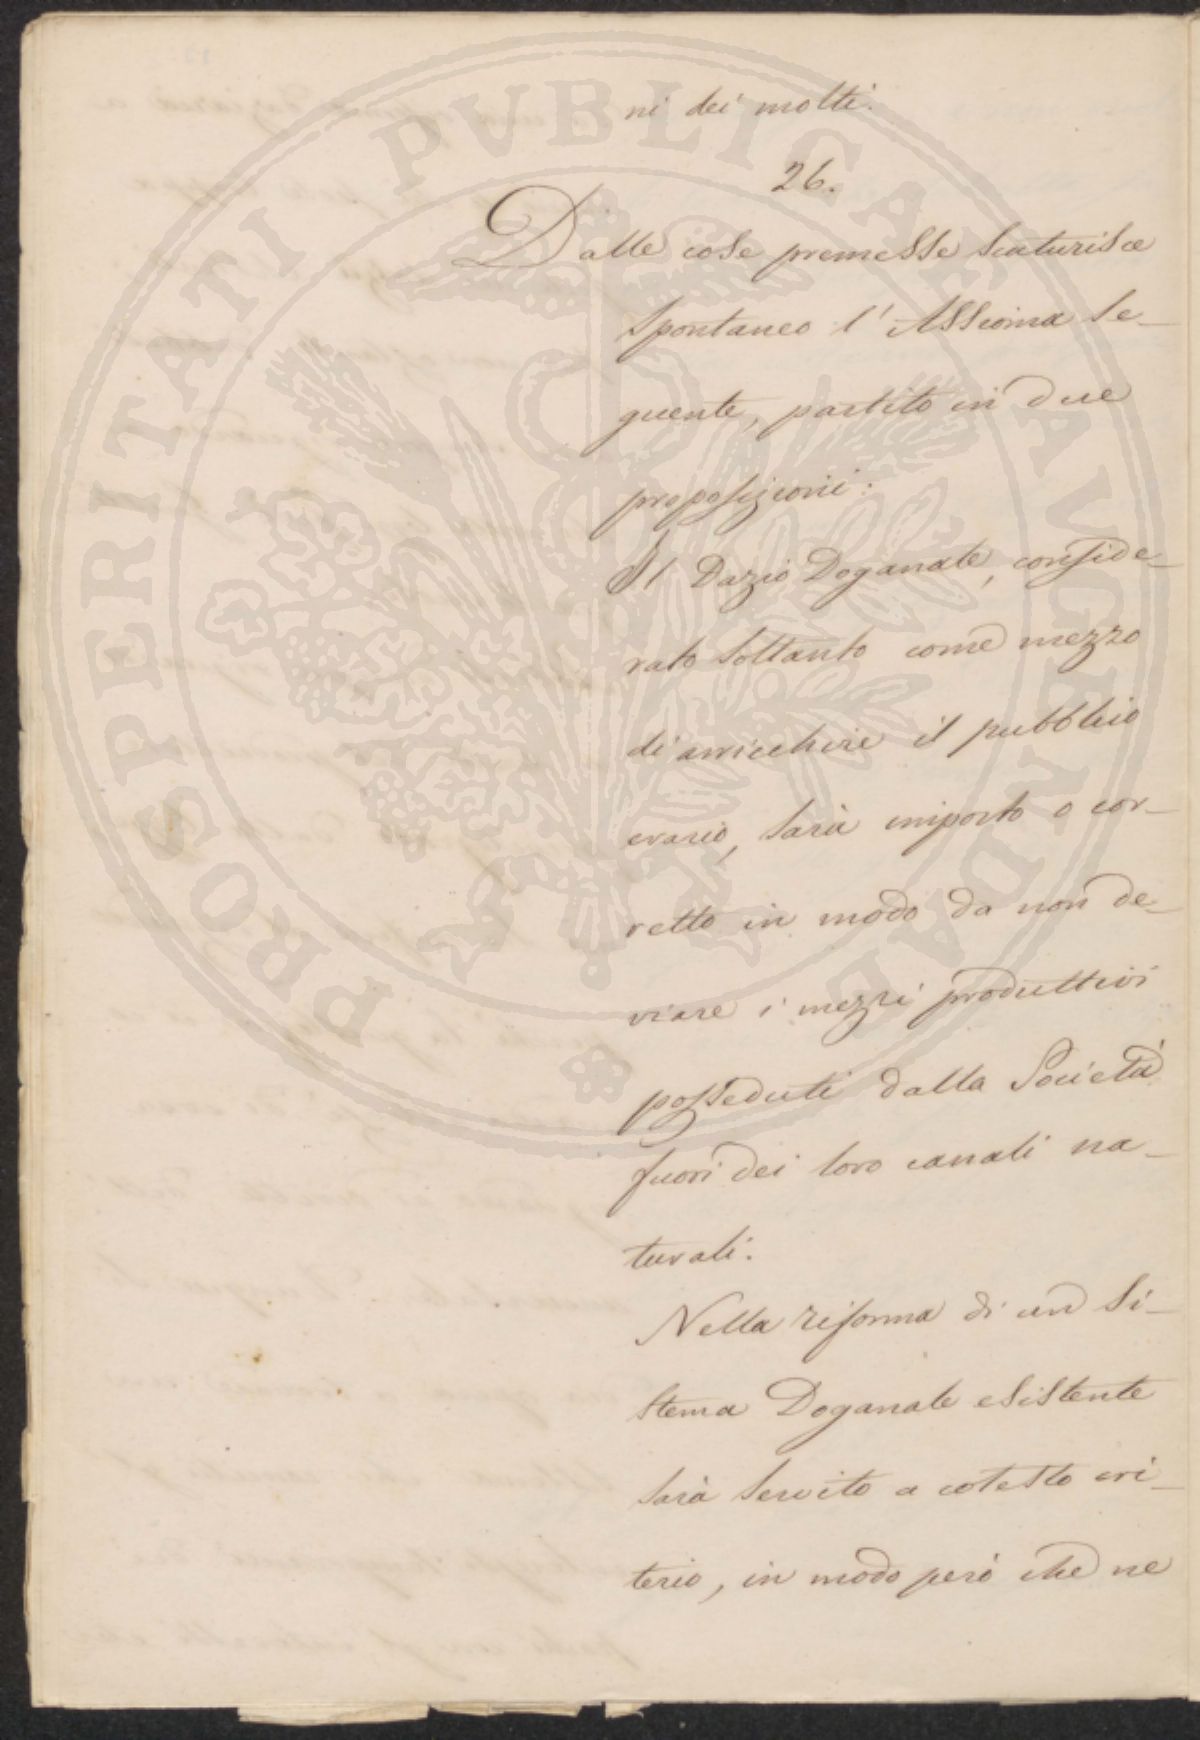 PROSPERITATI PUBLICAE AUGENDAE
ni dei molti.
26.
Dalle cose premesse scaturisce
spontaneo l'Assioma se-
guente, partito in due
proposizioni:
Il Dazio Doganale, conside-
rato soltanto come mezzo
di arricchire il pubblico
erario, sarà imposto o cor-
retto in modo da non de-
viare i mezzi produttivi
posseduti dalla Società
fuori dei loro canali na-
turali.
Nella riforma di un si-
stema Doganale esistente
sarà servito a cotesto cri-
terio, in modo però che ne